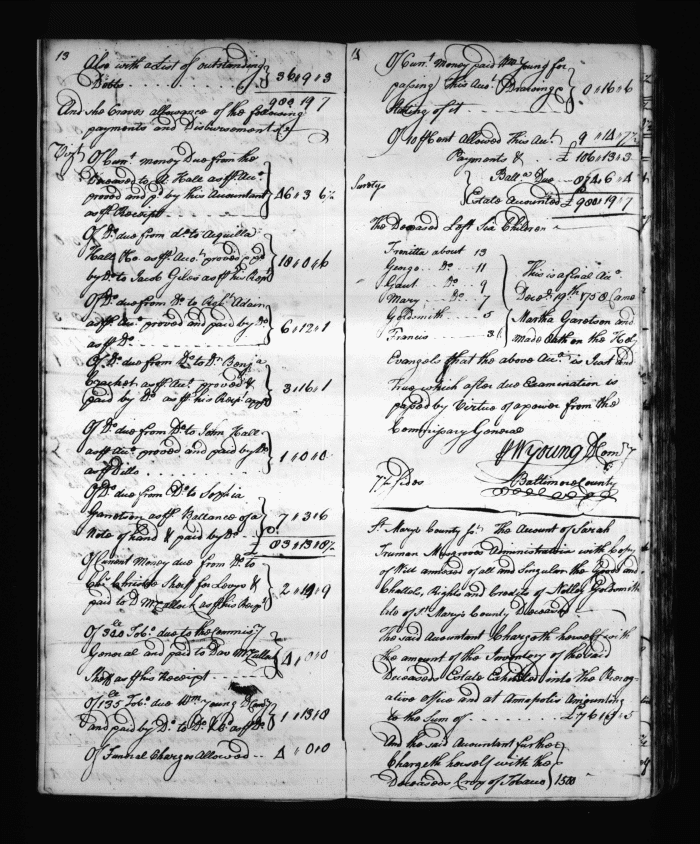 13
Also with a List of outstanding
Debts . . . . . . . } 36 " 9 " 3
988 19 7
And she Craves allowance of the following
payments and Disbursements
Vizt. Of Curr.t money Due from the
Deceased to Hall as ff Acc.t
proved and p.d by this Accountant
as ff Receipt } 46 " 3 " 6½
Of D.o due from d.o to Aquilla
Hall as ff Acc.t proved
by D.o to Jacob Giles as ff his Rec.t } 18 " 0 " 6
Of D.o due from D.o to Adam
as ff Acc.t proved and paid by D.o
as ff D.o } 6 " 12 " 1
Of D.o due from D.o to D.r Benj.a
as ff Acc.t proved &
paid by D.o as ff his Rec.t } 3 " 16 " 1
Of D.o due from D.o to John Hall
as ff Acc.t proved and paid by D.o
as ff Ditto . . . . . } 1 " 0 " 0
Of D.o due from D.o to Sophia
as ff Ballance of a
Note of hand & paid by D.o } 7 " 3 " 6
£ 83 " 13 " 8½
Of Current Money due from D.o to
Sherf for Levys &
paid to D McCulloch as ff his Rec.t } 2 " 19 " 9
Of 320 Tob.o due to the Commis.y
General and paid to Dav McCulloch
Sherf as ff his Receipt } 4 " 0 " 0
Of 135 Tob.o due W.m Young D
and paid by D.o to D.o as ff D.o } 1 " 13 " 8
Of Funeral Charges Allowed . . 4 " 0 " 0
14
Of Curr.t Money paid W.m Young for
passing this Acc.t Drawing &
Stating of it } 0 " 16 " 6
Of 10 ff Cent Allowed This Acc.t 9 " 14 " 7½
Payments & . . £ 106 " 13 " 3
Suretys } Ball.a Due . . 874 " 6 " 4
Estate Accounted £ 988 19 " 7
The Deceased Left Six Children
Frenetta about 13
George D.o 11
Gaut. D.o 9
Mary D.o 7
Goldsmith . . 5
Francis . . . 3
This is a final Acc.t
Decem.r 19th 1758 Came
Martha Garetson and
made Oath on the Holy
Evangels that the above Acc.t is Just and
True which after due Examination is
passed by Virtue of a power from the
Commissary General
W Young D Com.y
7½ Sides Baltimore County
St. Marys County ss. The Account of Sarah
Truman Administratrix with Copy
of Will annexed of all and Singular the Goods and
Chattels, Rights and Credits of Notley Goldsmith
late of St. Mary's County Deceased
The said Accountant Chargeth herself with
the amount of the Inventory of the said
Deceaseds Estate Exhibited into the Prerog-
ative office and at Annapolis Amounting
to the Sum of . . . . . £76 " 19 " 5
And the said Accountant further
Chargeth herself with the
Deceaseds Crop of Tobacco } 1500